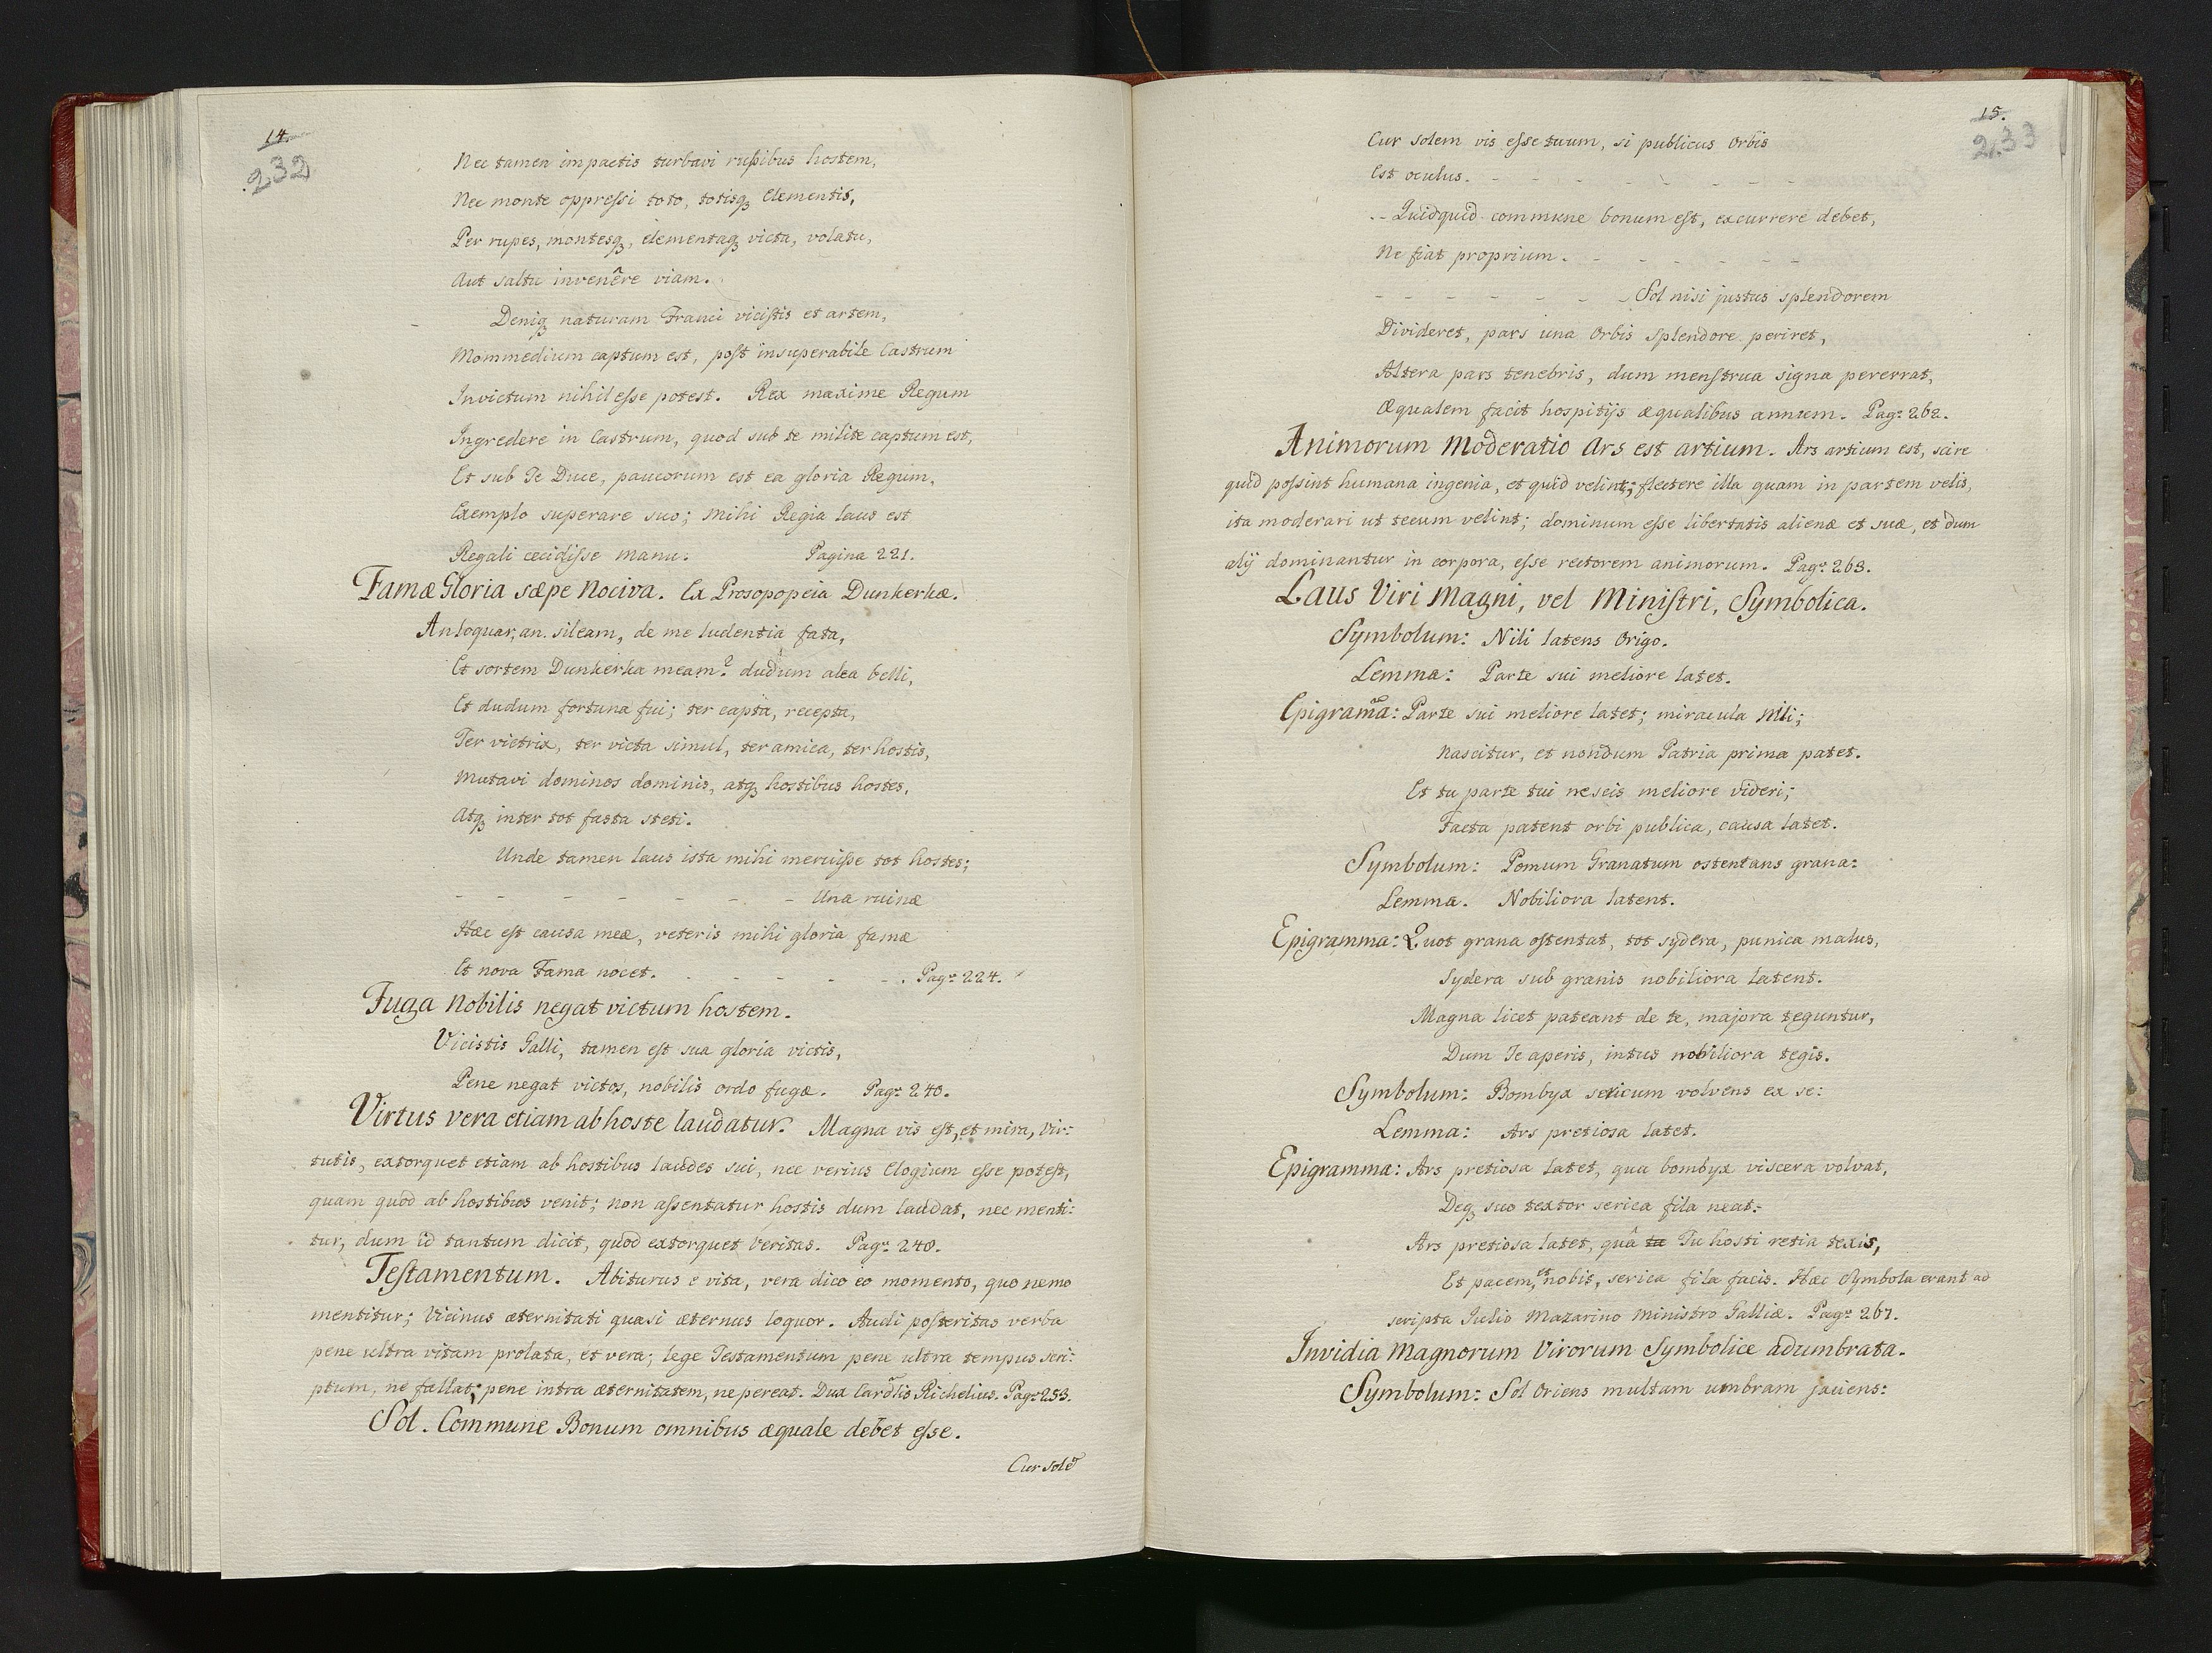 14.
232
Nec tamen impactis turbavi rupibus hostem,
Nec monte oppreſsi toto, totisq; Elementis,
Per rupes, montesq;, elementaq; victa, volatu,
Aut saltu invenêre viam.
Deniq; naturam Franci viciſtis et artem,
Mommedium captum est, poſt insuperabile Castrum
Invictum nihil eſse potest. Rex maxime Regum
Ingredere in Castrum, quod sub te milite captum est,
Et sub Te Duce, paucorum est ea gloria Regum,
Exemplo superare suo; mihi Regia laus est
Regali cecidiſse manu. Pagina 221.
Famæ Gloria sæpe Nociva. Ex Prosopopeia Dunkerkæ.
An loquar, an sileam, de me ludentia fata,
Et sortem Dunkerka meam? dudum alea belli,
Et dudum fortuna fui; ter capta, recepta,
Ter victrix, ter victa simul, ter amica, ter hostis,
Mutavi dominos dominis, atq; hostibus hostes,
Atq; inter tot fasta steti.
Unde tamen laus ista mihi meruiſse tot hostes;
- - - - - - - - Una ruinæ
Hæc eſt causa meæ, veteris mihi gloria famæ
Et nova Fama nocet. - - - - - . Pag: 224.
Fuga Nobilis negat victum hostem.
Vicistis Galli, tamen eſt sua gloria victis,
Pene negat victos, nobilis ordo fugæ. Pag: 240.
Virtus vera etiam ab hoste laudatur. Magna vis eſt, et mira, Vir:
tutis, extorquet etiam ab hostibus laudes sui, nec verius Elogium esse poteſt,
quam quod ab hostibus venit; non aſsentatur hostis dum laudat, nec menti:
tur, dum id tantum dicit, quod extorquet Veritas. Pag: 240.
Teſtamentum. Abiturus e vita, vera dico eo momento, quo nemo
mentitur; Vicinus æternitati quasi æternus loquor. Audi poſteritas verba
pene ultra vitam prolata, et vera; lege Testamentum pene ultra tempus scri:
ptum, ne fallat; pene intra æternitatem, ne pereat. Dux Cardlis Richelius. Pag: 253.
Sol. Commune Bonum omnibus æquale debet eſse.
Cur sole~
15.
233
Cur solem vis eſse tuum, si publicus Orbis
Est oculus. - - - - - - - -
- Quidquid commune bonum eſt, excurrere debet,
Ne fiat proprium. - - - - - -
- - - - - - - Sol nisi justus splendorem
Divideret, pars una Orbis splendore periret,
Altera pars tenebris, dum menſtrua signa pererrat,
Æqualem facit hospitijs æqualibus annum. Pag: 262.
Animorum Moderatio Ars est artium. Ars artium est, scire
quid poſsint humana ingenia, et quid velint; flectere illa quam in partem velis,
ita moderari ut tecum velint; dominum eſse libertatis alienæ et suæ, et dum
alij dominantur in corpora, eſse rectorem animorum. Pag: 263.
Laus Viri Magni, vel Miniſtri, Symbolica.
Symbolum: Nili latens Origo.
Lemma: Parte sui meliore latet.
Epigrama~: Parte sui meliore latet; miracula Nili;
Nascitur, et nondum Patria prima patet.
Et tu parte tui nescis meliore videri;
Facta patent orbi publica, causa latet.
Symbolum: Pomum Granatum ostentans grana:
Lemma. Nobiliora latent.
Epigramma: Quot grana oſtentat, tot sydera, punica malus,
Sydera sub granis nobiliora latent.
Magna licet pateant de te, majora teguntur,
Dum Te aperis, intus nobiliora tegis.
Symbolum: Bombyx sericum volvens ex se:
Lemma: Ars pretiosa latet.
Epigramma: Ars pretiosa latet, qua bombyx viscera volvat,
Deq; suo textor serica fila neat:
Ars pretiosa latet, quâ tu Tu hosti retia texis,
Et pacem, et nobis, serica fila facis. Hæc Symbola erant ad
scripta Julio Mazarino Ministro Galliæ. Pag: 267.
Invidia Magnorum Virorum Symbolice adumbrata.
Symbolum: Sol Oriens multam umbram jaciens: